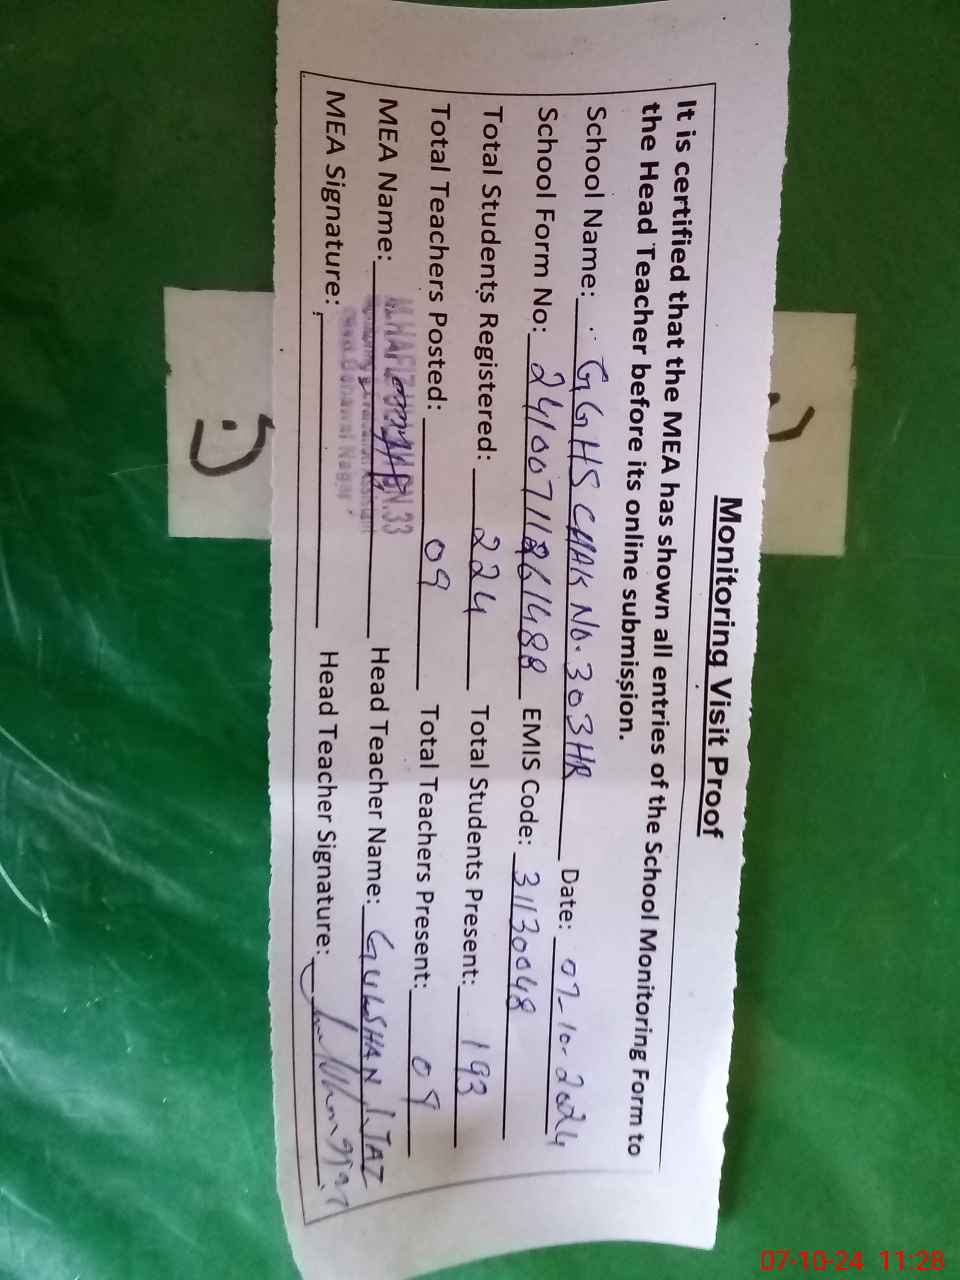 Monitoring Visit Proof
It is certified that the MEA has shown all entries of the School Monitoring Form to
the Head Teacher before its online submission.
School Name: GGHS CHAK No. 303HR Date: 07-10-2024
School Form No: EMIS Code: 31130048
Total Students Registered: 224 Total Students Present: 193
Total Teachers Posted: 09 Total Teachers Present: 09
MEA Name: Head Teacher Name: GULSHAN IJAZ
MEA Signature: Head Teacher Signature:
07-10-24 11:28